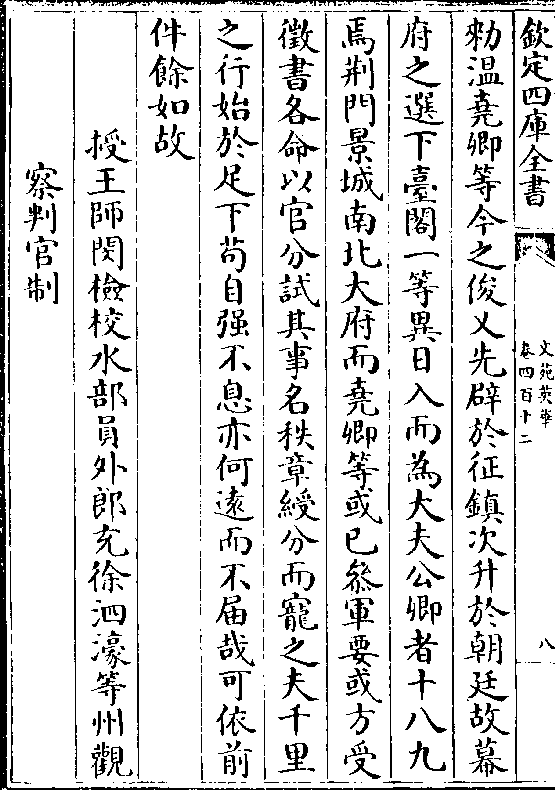 欽定四庫全書
文苑英華
卷四百十二
八
勑溫堯卿等今之俊乂先辟於征鎮次升於朝廷故幕
府之選下臺閣一等異日入而為大夫公卿者十八九
焉荆門景城南北大府而堯卿等或已叅軍要或方受
徵書各命以官分試其事名秩章綬分而寵之夫千里
之行始於足下茍自强不息亦何遠而不届哉可依前
件餘如故
授王師閔檢校水部員外郎充徐泗濠等州觀
察判官制